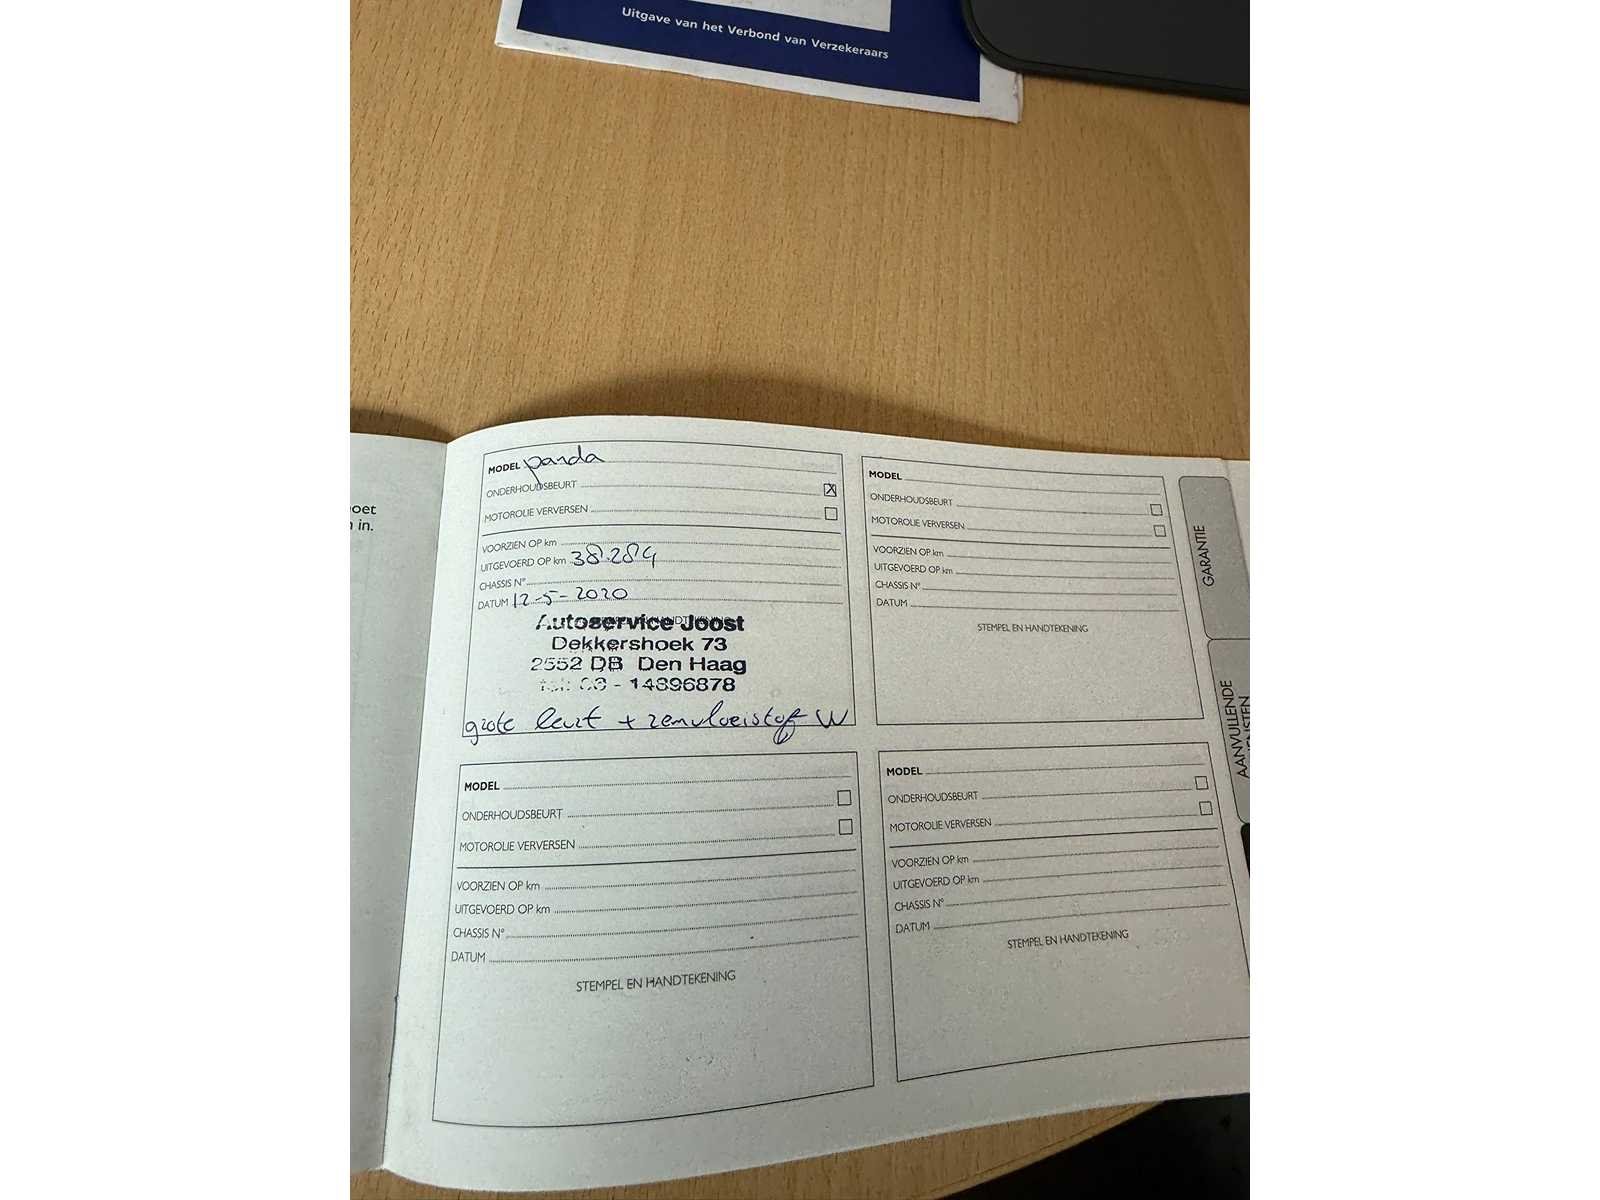 Uitgave van het Verbond van Verzekeraars
oet
in.
MODEL panda
ONDERHOUDSBEURT X
MOTOROLIE VERVERSEN
VOORZIEN OP km
UITGEVOERD OP km 38.284
CHASSIS N°
DATUM 12-5-2020
STEMPEL EN HANDTEKENING
Autoservice Joost
Dekkershoek 73
2552 DB Den Haag
tel: 06 - 14896878
grote beurt + remvloeistof W
MODEL
ONDERHOUDSBEURT
MOTOROLIE VERVERSEN
VOORZIEN OP km
UITGEVOERD OP km
CHASSIS N°
DATUM
STEMPEL EN HANDTEKENING
MODEL
ONDERHOUDSBEURT
MOTOROLIE VERVERSEN
VOORZIEN OP km
UITGEVOERD OP km
CHASSIS N°
DATUM
STEMPEL EN HANDTEKENING
MODEL
ONDERHOUDSBEURT
MOTOROLIE VERVERSEN
VOORZIEN OP km
UITGEVOERD OP km
CHASSIS N°
DATUM
STEMPEL EN HANDTEKENING
GARANTIE
AANVULLENDE